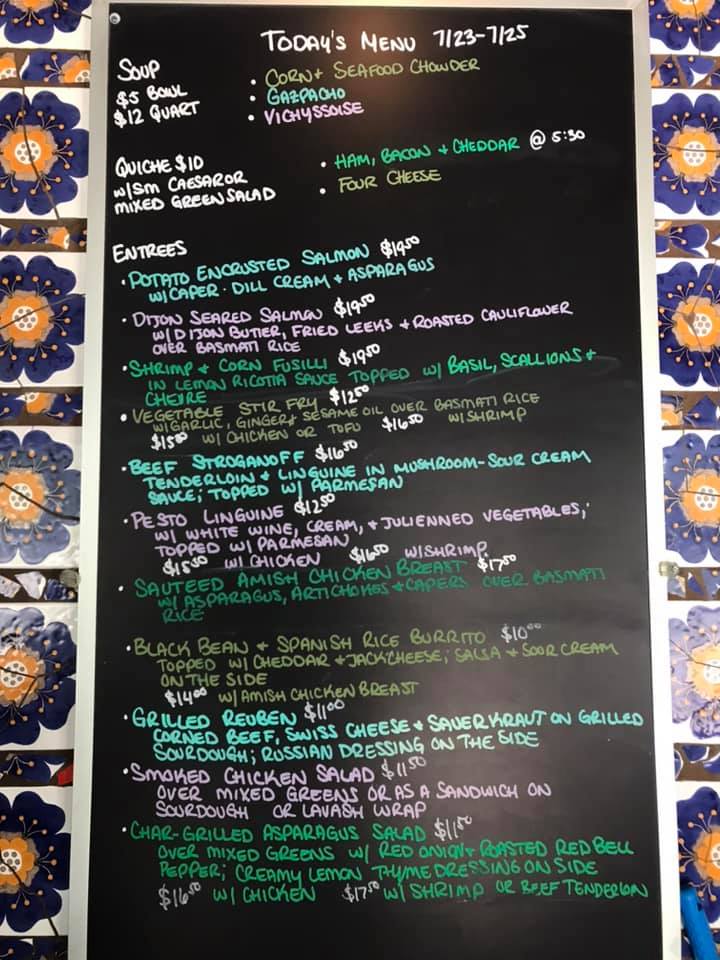 TODAY'S MENU 7/23-7/25
SOUP
$5 BOWL
$12 QUART
• CORN + SEAFOOD CHOWDER
• GAZPACHO
• VICHYSSOISE
QUICHE $10
W/SM CAESAR OR
MIXED GREEN SALAD
• HAM, BACON + CHEDDAR @ 5:30
• FOUR CHEESE
ENTREES
• POTATO ENCRUSTED SALMON $19.50
W/CAPER-DILL CREAM + ASPARAGUS
• DIJON SEARED SALMON $19.50
W/DIJON BUTTER, FRIED LEEKS + ROASTED CAULIFLOWER
OVER BASMATI RICE
• SHRIMP + CORN FUSILLI $19.50
IN LEMON RICOTTA SAUCE TOPPED W/ BASIL, SCALLIONS +
CHEVRE
• VEGETABLE STIR FRY $12.50
W/GARLIC, GINGER + SESAME OIL OVER BASMATI RICE
$15.50 W/ CHICKEN OR TOFU $16.50 W/SHRIMP
• BEEF STROGANOFF $16.50
TENDERLOIN + LINGUINE IN MUSHROOM-SOUR CREAM
SAUCE; TOPPED W/ PARMESAN
• PESTO LINGUINE $12.50
W/ WHITE WINE, CREAM, + JULIENNED VEGETABLES;
TOPPED W/ PARMESAN
$15.50 W/ CHICKEN $16.50 W/SHRIMP
• SAUTEED AMISH CHICKEN BREAST $17.50
W/ ASPARAGUS, ARTICHOKES + CAPERS OVER BASMATI
RICE
• BLACK BEAN + SPANISH RICE BURRITO $10.00
TOPPED W/ CHEDDAR + JACK CHEESE; SALSA + SOUR CREAM
ON THE SIDE
$14.00 W/ AMISH CHICKEN BREAST
• GRILLED REUBEN $11.00
CORNED BEEF, SWISS CHEESE + SAUERKRAUT ON GRILLED
SOURDOUGH; RUSSIAN DRESSING ON THE SIDE
• SMOKED CHICKEN SALAD $11.50
OVER MIXED GREENS OR AS A SANDWICH ON
SOURDOUGH OR LAVASH WRAP
• CHAR-GRILLED ASPARAGUS SALAD $11.50
OVER MIXED GREENS W/ RED ONION + ROASTED RED BELL
PEPPER; CREAMY LEMON THYME DRESSING ON SIDE
$16.50 W/ CHICKEN $17.50 W/ SHRIMP OR BEEF TENDERLOIN